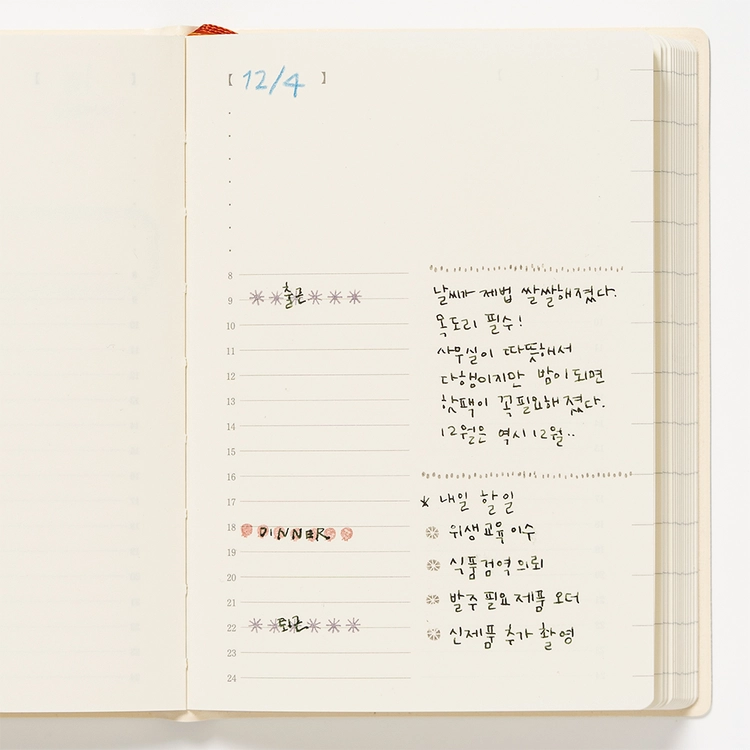 【 12/4 】
8
9 출근
10
11
12
13
14
15
16
17
18 DINNER
19
20
21
22 퇴근
23
24
날씨가 제법 쌀쌀해졌다.
목도리 필수!
사무실이 따뜻해서
다행이지만 밤이 되면
핫팩이 꼭 필요해졌다.
12월은 역시 12월..
* 내일 할 일
위생교육 이수
식품검역 의뢰
발주 필요 제품 오더
신제품 추가 촬영